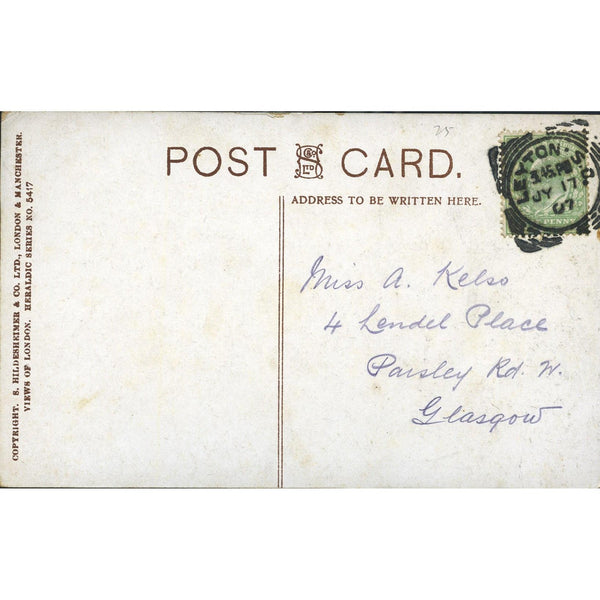 COPYRIGHT. S. HILDESHEIMER & CO. LTD., LONDON & MANCHESTER.
VIEWS OF LONDON. HERALDIC SERIES NO. 5417
POST CARD.
S
& Co
LTD
ADDRESS TO BE WRITTEN HERE.
25
LEYTON. S.O.
JY 17
07
PENNY
Miss A. Kelso
4 Lendel Place
Paisley Rd. W.
Glasgow